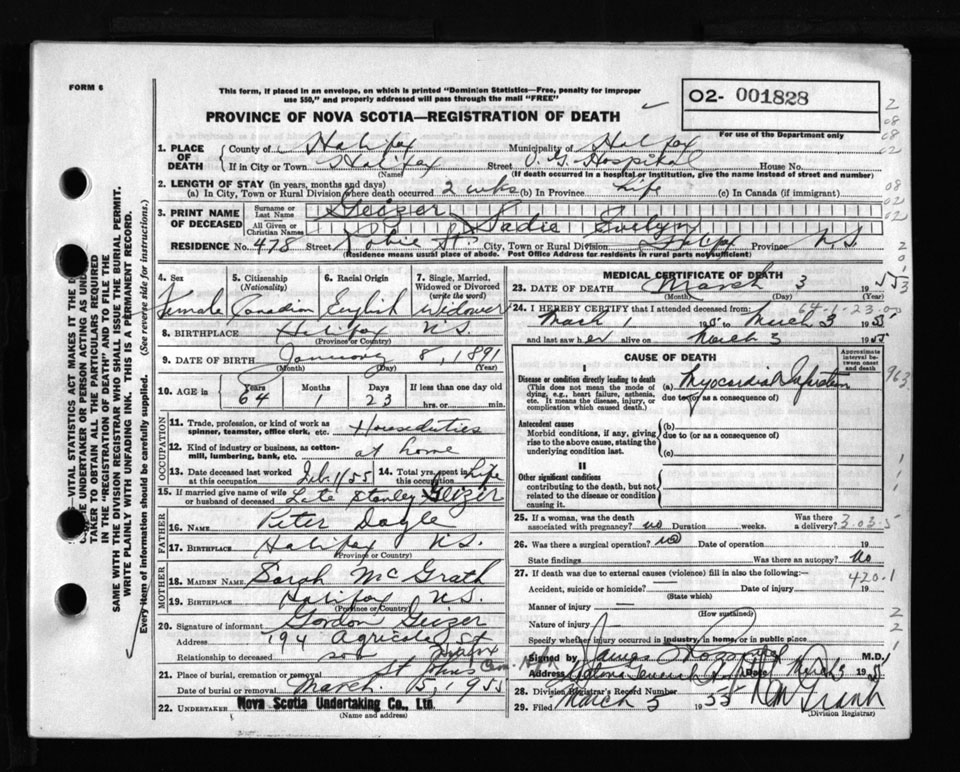 FORM 6
This form, if placed in an envelope, on which is printed "Dominion Statistics—Free, penalty for improper
use $50," and properly addressed will pass through the mail "FREE"
O2- 001828
PROVINCE OF NOVA SCOTIA—REGISTRATION OF DEATH
For use of the Department only
1. PLACE OF DEATH
County of Halifax Municipality of Halifax
If in City or Town Halifax Street V. G. Hospital House No.
(Name) (If death occurred in a hospital or institution, give the name instead of street and number)
2. LENGTH OF STAY (in years, months and days)
(a) In City, Town or Rural Division where death occurred 2 wks (b) In Province Life (c) In Canada (if immigrant)
3. PRINT NAME OF DECEASED
Surname or Last Name Geizer
All Given or Christian Names Sadie Evelyn
RESIDENCE No. 478 Street Robie St City, Town or Rural Division Halifax Province N.S.
(Residence means usual place of abode. Post Office Address for residents in rural parts not sufficient)
4. Sex Female
5. Citizenship (Nationality) Canadian
6. Racial Origin English
7. Single, Married, Widowed or Divorced (write the word) Widower
8. BIRTHPLACE Halifax N.S.
(Province or Country)
9. DATE OF BIRTH January 8, 1891
(Month) (Day) (Year)
10. AGE in Years 64 Months 1 Days 23 If less than one day old hrs. or min.
OCCUPATION
11. Trade, profession, or kind of work as spinner, teamster, office clerk, etc. Houseduties
12. Kind of industry or business, as cotton-mill, lumbering, bank, etc. at home
13. Date deceased last worked at this occupation Feb. 1/55 14. Total yrs. spent in this occupation Life
15. If married give name of wife or husband of deceased Late Stanley Geizer
FATHER
16. NAME Peter Dayle
17. BIRTHPLACE Halifax N.S.
(Province or Country)
MOTHER
18. MAIDEN NAME Sarah McGrath
19. BIRTHPLACE Halifax N.S.
(Province or Country)
20. Signature of informant Gordon Geizer
Address 194 Agricola St
Relationship to deceased son
21. Place of burial, cremation or removal St Johns
Date of burial or removal March 5, 1955
22. UNDERTAKER Nova Scotia Undertaking Co., Ltd.
(Name and address)
MEDICAL CERTIFICATE OF DEATH
23. DATE OF DEATH March 3 1955
(Month) (Day) (Year)
24. I HEREBY CERTIFY that I attended deceased from:
March 1 to March 3 1955
and last saw her alive on March 3 1955
CAUSE OF DEATH
Approximate interval between onset and death
I
Disease or condition directly leading to death
(This does not mean the mode of dying, e.g., heart failure, asthenia, etc. It means the disease, injury, or complication which caused death.)
(a) Myocardial Infarction
due to (or as a consequence of)
Antecedent causes
Morbid conditions, if any, giving rise to the above cause, stating the underlying condition last.
(b)
due to (or as a consequence of)
(c)
II
Other significant conditions
contributing to the death, but not related to the disease or condition causing it.
25. If a woman, was the death associated with pregnancy? no Duration weeks. Was there a delivery?
26. Was there a surgical operation? no Date of operation 19
State findings Was there an autopsy? No
27. If death was due to external causes (violence) fill in also the following:—
420.1
Accident, suicide or homicide? Date of injury 19
(State which)
Manner of injury
(How sustained)
Nature of injury
Specify whether injury occurred in industry, in home, or in public place
Signed by James M.D.
Address Date March 3 19
28. Division Registrar's Record Number
29. Filed March 5 1955
(Division Registrar)
SAME WITH THE DIVISION REGISTRAR WHO SHALL ISSUE THE BURIAL PERMIT.
WRITE PLAINLY WITH UNFADING INK. THIS IS A PERMANENT RECORD.
Every item of information should be carefully supplied. (See reverse side for instructions.)